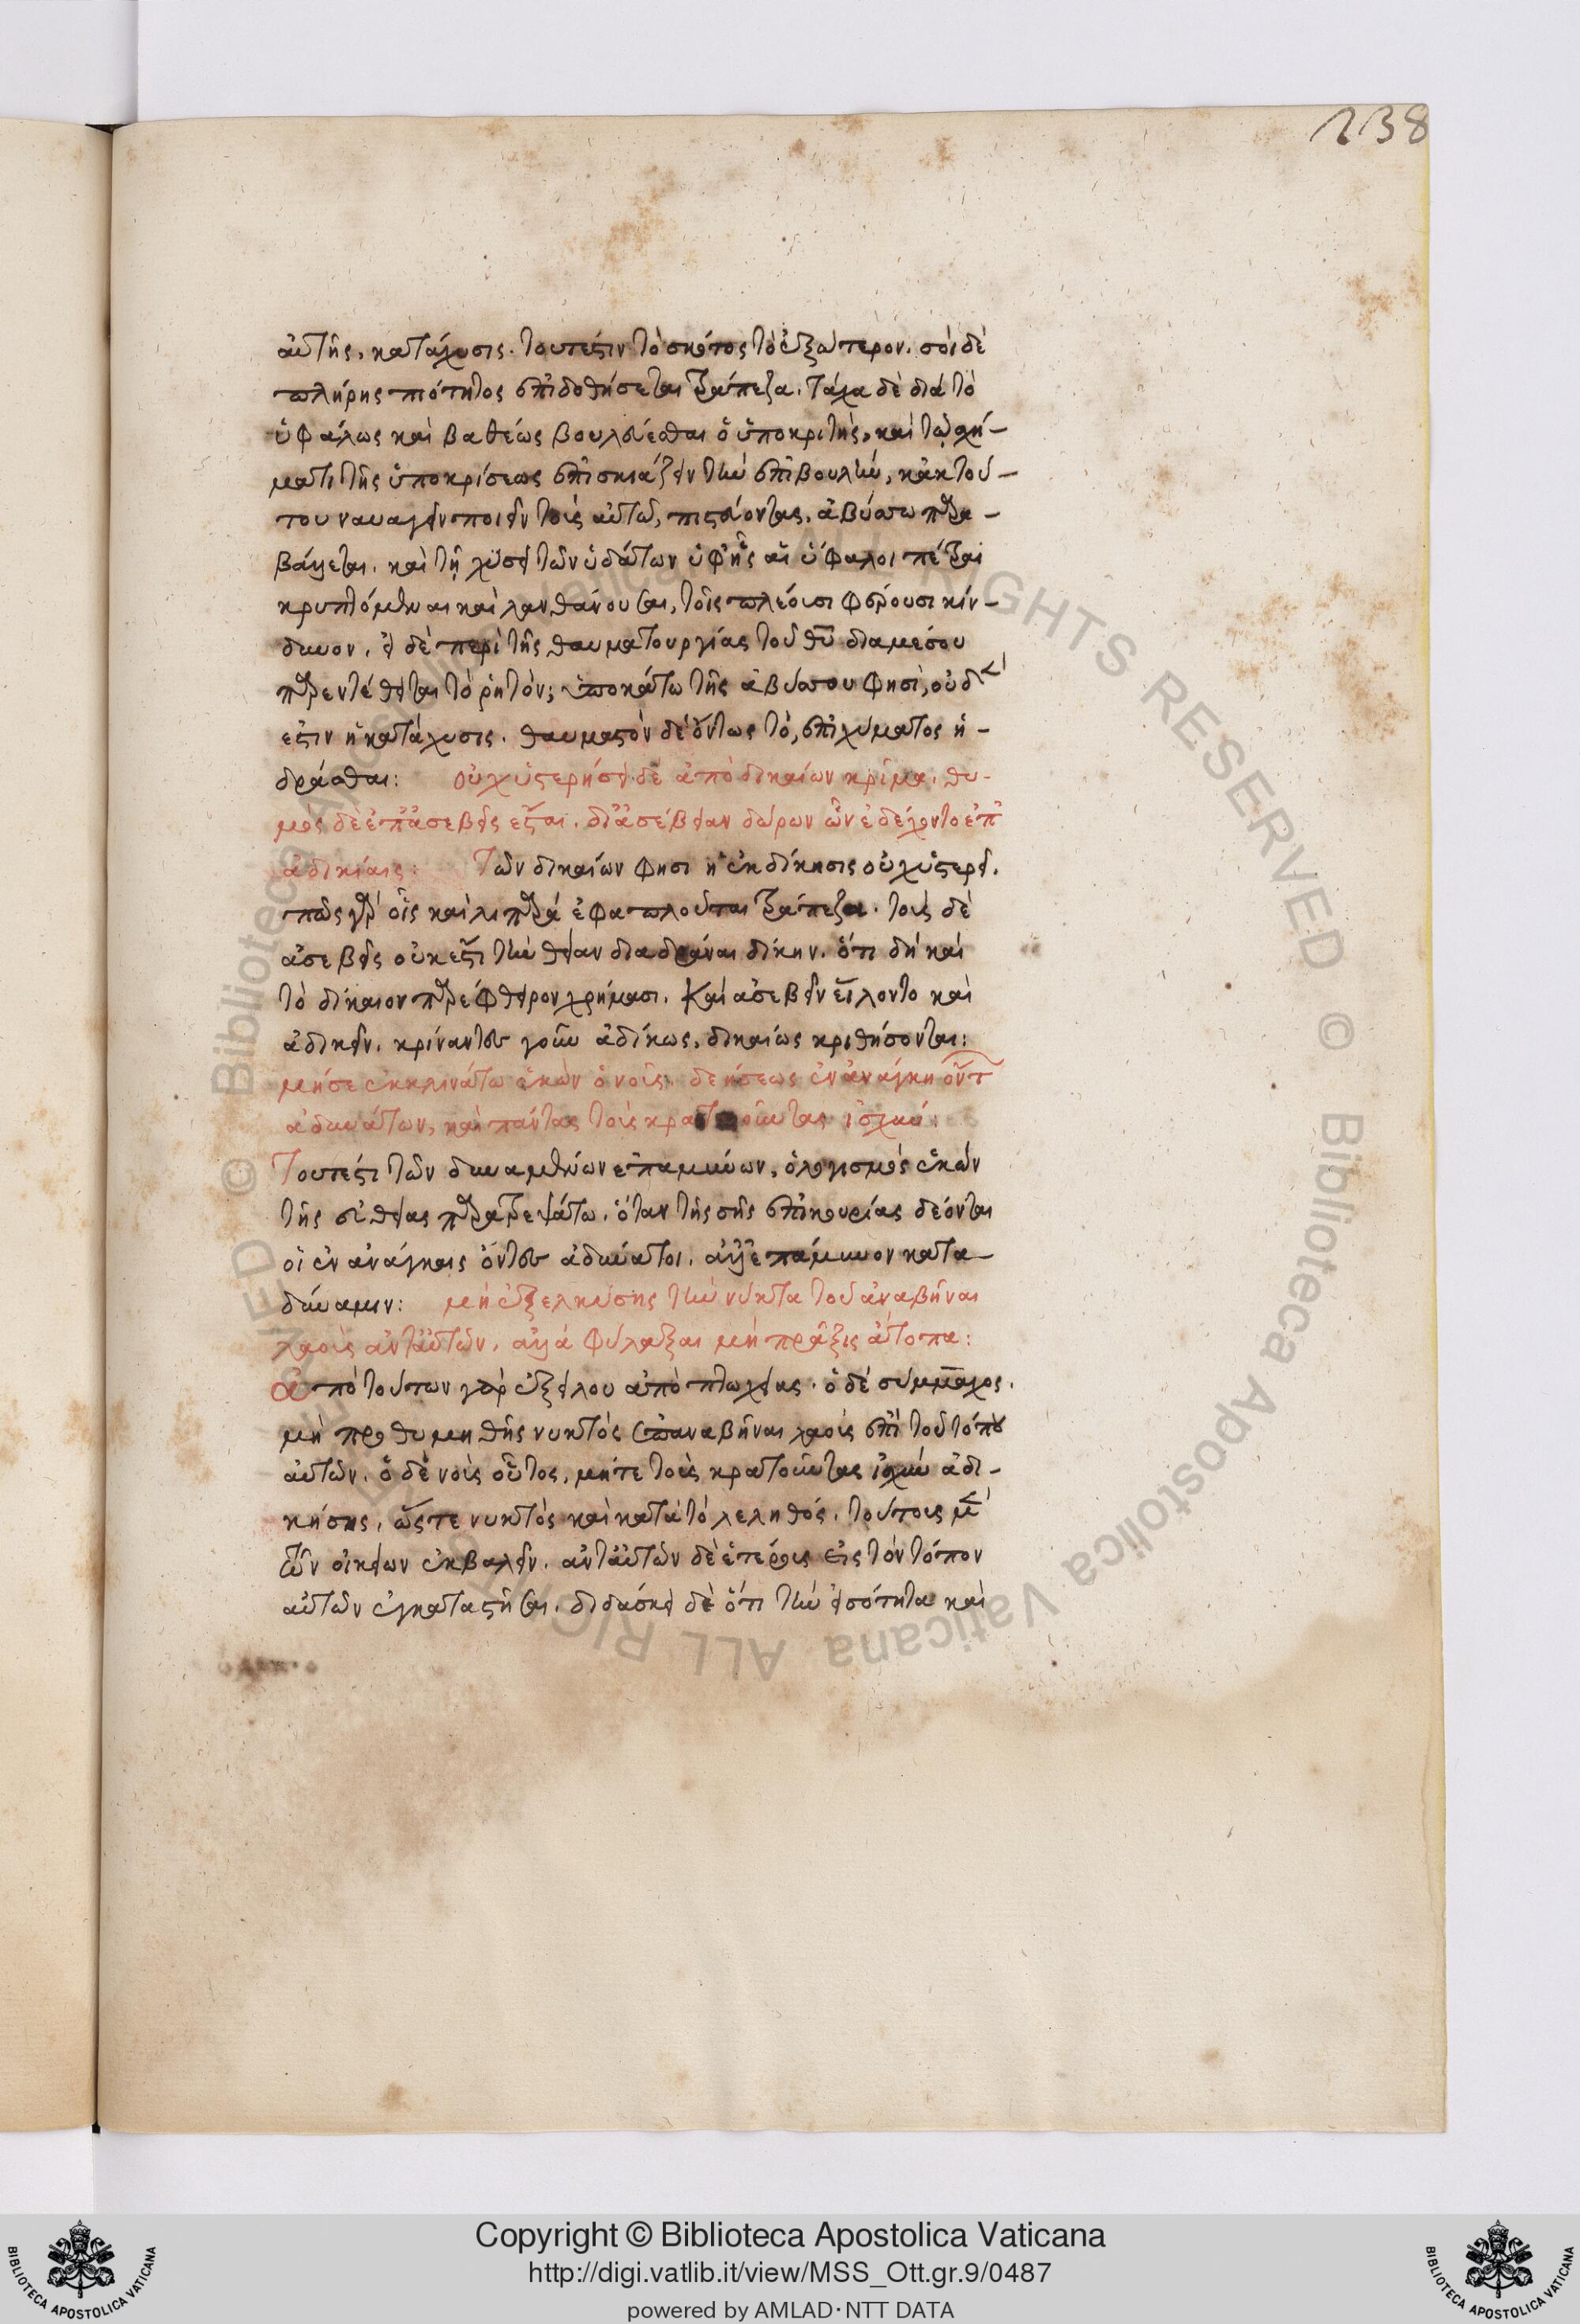 238
αὐτῆς, κατάχυσις. τουτέστιν τὸ σκότος τὸ ἐξώτερον. σοὶ δὲ
πλήρης πιότητος ἐπιδοθήσεται τράπεζα. τάχα δὲ διὰ τὸ
ὑφάλως καὶ βαθέως βουλεύεσθαι ὁ ὑποκριτὴς, καὶ τῷ σχή-
ματι τῆς ὑποκρίσεως ἐπισκιάζειν τὴν ἐπιβουλὴν, κἀκ τού-
του ναυαγεῖν ποιεῖν τοὺς αὐτῷ, πιστεύοντας, ἀβύσσω παρα-
βάλλεται. καὶ τῇ χύσει τῶν ὑδάτων ὑφ' ἧς αἱ ὕφαλοι πέτραι
κρυπτόμεναι καὶ λανθάνουσαι, τοῖς πλέουσι φέρουσι κίν-
δυνον. εἰ δὲ περὶ τῆς θαυματουργίας τοῦ θυ διαμέσου
παρεντέθειται τὸ ῥητὸν; ὑποκάτω τῆς ἀβύσσου φησὶ, οὐδ
ἐστιν ἡ κατάχυσις. θαυμαστὸν δὲ ὄντως τὸ, ἐπιχύματος ἡ-
δράσθαι: οὐχ ὑστερήσει δὲ ἀπὸ δικαίων κρῖμα. θυ-
μὸς δὲ ἐπ' ἀσεβεῖς ἔσται. δι' ἀσέβειαν δώρων ὧν ἐδέχοντο ἐπ'
ἀδικίαις: Τῶν δικαίων φησι ἡ ἐκδίκησις οὐχ ὑστερεῖ.
πῶς γὰρ οἷς καὶ λιπαρά ἐφαπλοῦται τράπεζα. τοὺς δὲ
ἀσεβεῖς οὐκ ἔστι τὴν θείαν διαδρᾶναι δίκην. ὅτι δὴ καὶ
τὸ δίκαιον παρέφθειρον χρήμασι. Καὶ ἀσεβεῖν εἵλοντο καὶ
ἀδικεῖν. κρίναντες γοῦν ἀδίκως, δικαίως κριθήσονται:
μή σε ἐκκλινάτω ἑκὼν ὁ νοῦς. δεήσεως ἐν ἀνάγκῃ ὄντ
ἀδυνάτων, καὶ πάντας τοὺς κραταιοῦντας ἰσχύν:
Τουτέστι τῶν δυναμένων ἐπαμύνων, ὁ λογισμός ἑκών
τῆς εὐθείας παρατρεψάτω. ὅταν τῆς σῆς ἐπικουρίας δέονται
οἱ ἐν ἀνάγκαις ὄντες ἀδύνατοι. ἀλλ' ἐπάμυνον κατα-
δύναμιν: μὴ ἐξελκύσῃς τὴν νύκτα τοῦ ἀναβῆναι
λαοὺς ἀντ' αὐτῶν. ἀλλὰ φύλαξαι μὴ πράξῃς ἄτοπα:
ἀπὸ τούτων γὰρ ἐξείλου ἀπὸ πτωχείας. ὁ δὲ σύμμαχος.
μὴ προθυμηθῇς νυκτὸς ἀναβῆναι λαοὺς ἐπὶ τοῦ τόπου
αὐτῶν. ὁ δὲ νοῦς οὗτος, μήτε τοὺς κρατοῦντας ἰσχὺν ἀδι-
κήσῃς, ὥστε νυκτὸς καὶ κατὰ τὸ λεληθός, τούτους μὲν
τῶν οἰκείων ἐκβαλεῖν. ἀντ' αὐτῶν δὲ ἑτέρους εἰς τὸν τόπον
αὐτῶν ἐγκαταστῆσαι. διδάσκει δὲ ὅτι τὴν ἰσότητα καὶ
Copyright © Biblioteca Apostolica Vaticana
http://digi.vatlib.it/view/MSS_Ott.gr.9/0487
powered by AMLAD · NTT DATA